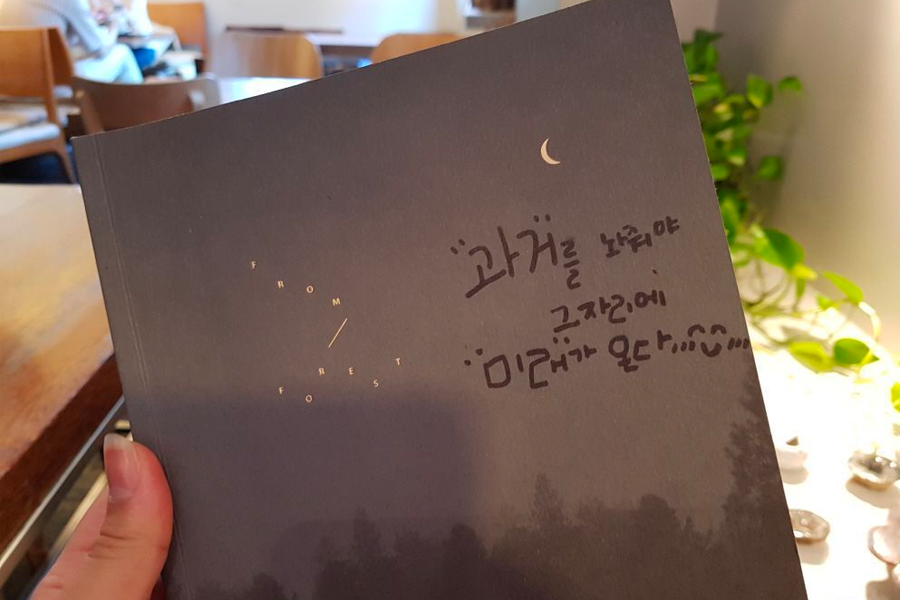 FROM
/
FOREST
"과거를 놔줘야
그자리에
"미래"가 온다...^^...